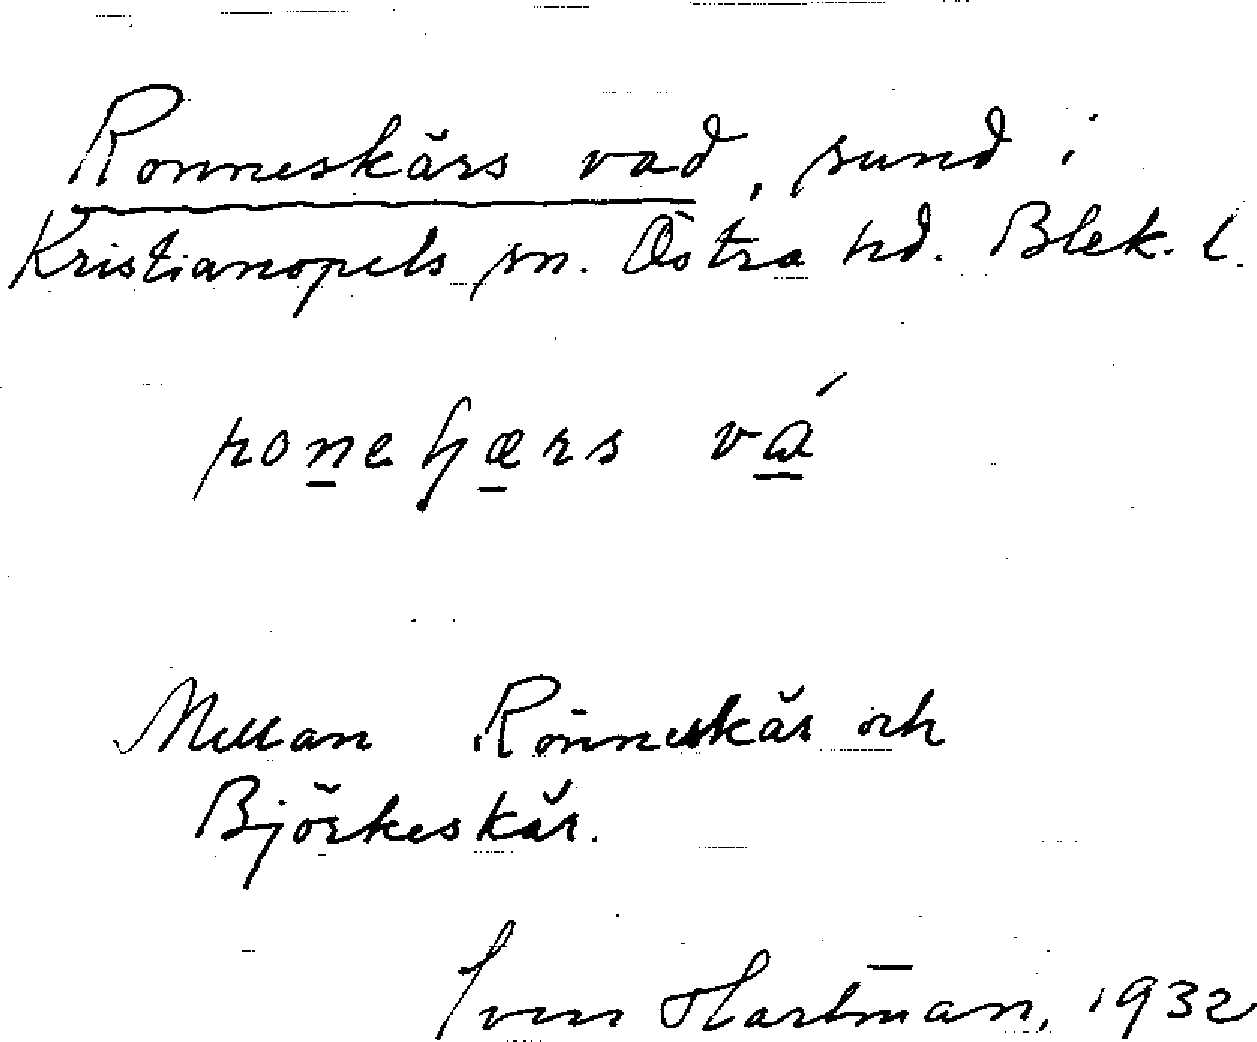 Ronneskärs vad, sund i
Kristianopels sn. Östra hd. Blek. l.
Mellan Rönneskär och
Björkeskär.
Sven Hartman, 1932